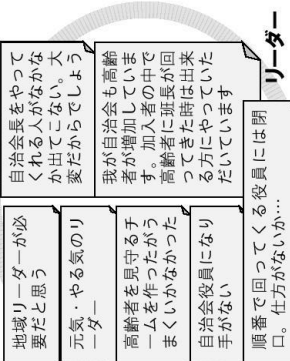 リーダー
自治会長をやって
くれる人がなかな
か出てこない。大
変だからでしょう
我が自治会も高齢
者が増加していま
す。加入者の中で
高齢者に班長が回
ってきた時は出来
る方にやっていた
だいています
地域リーダーが必
要だと思う
元気・やる気のリ
ーダー
高齢者を見守るチ
ームを作ったがう
まくいかなかった
自治会役員になり
手がない
順番で回ってくる役員には閉
口。仕方がないか…